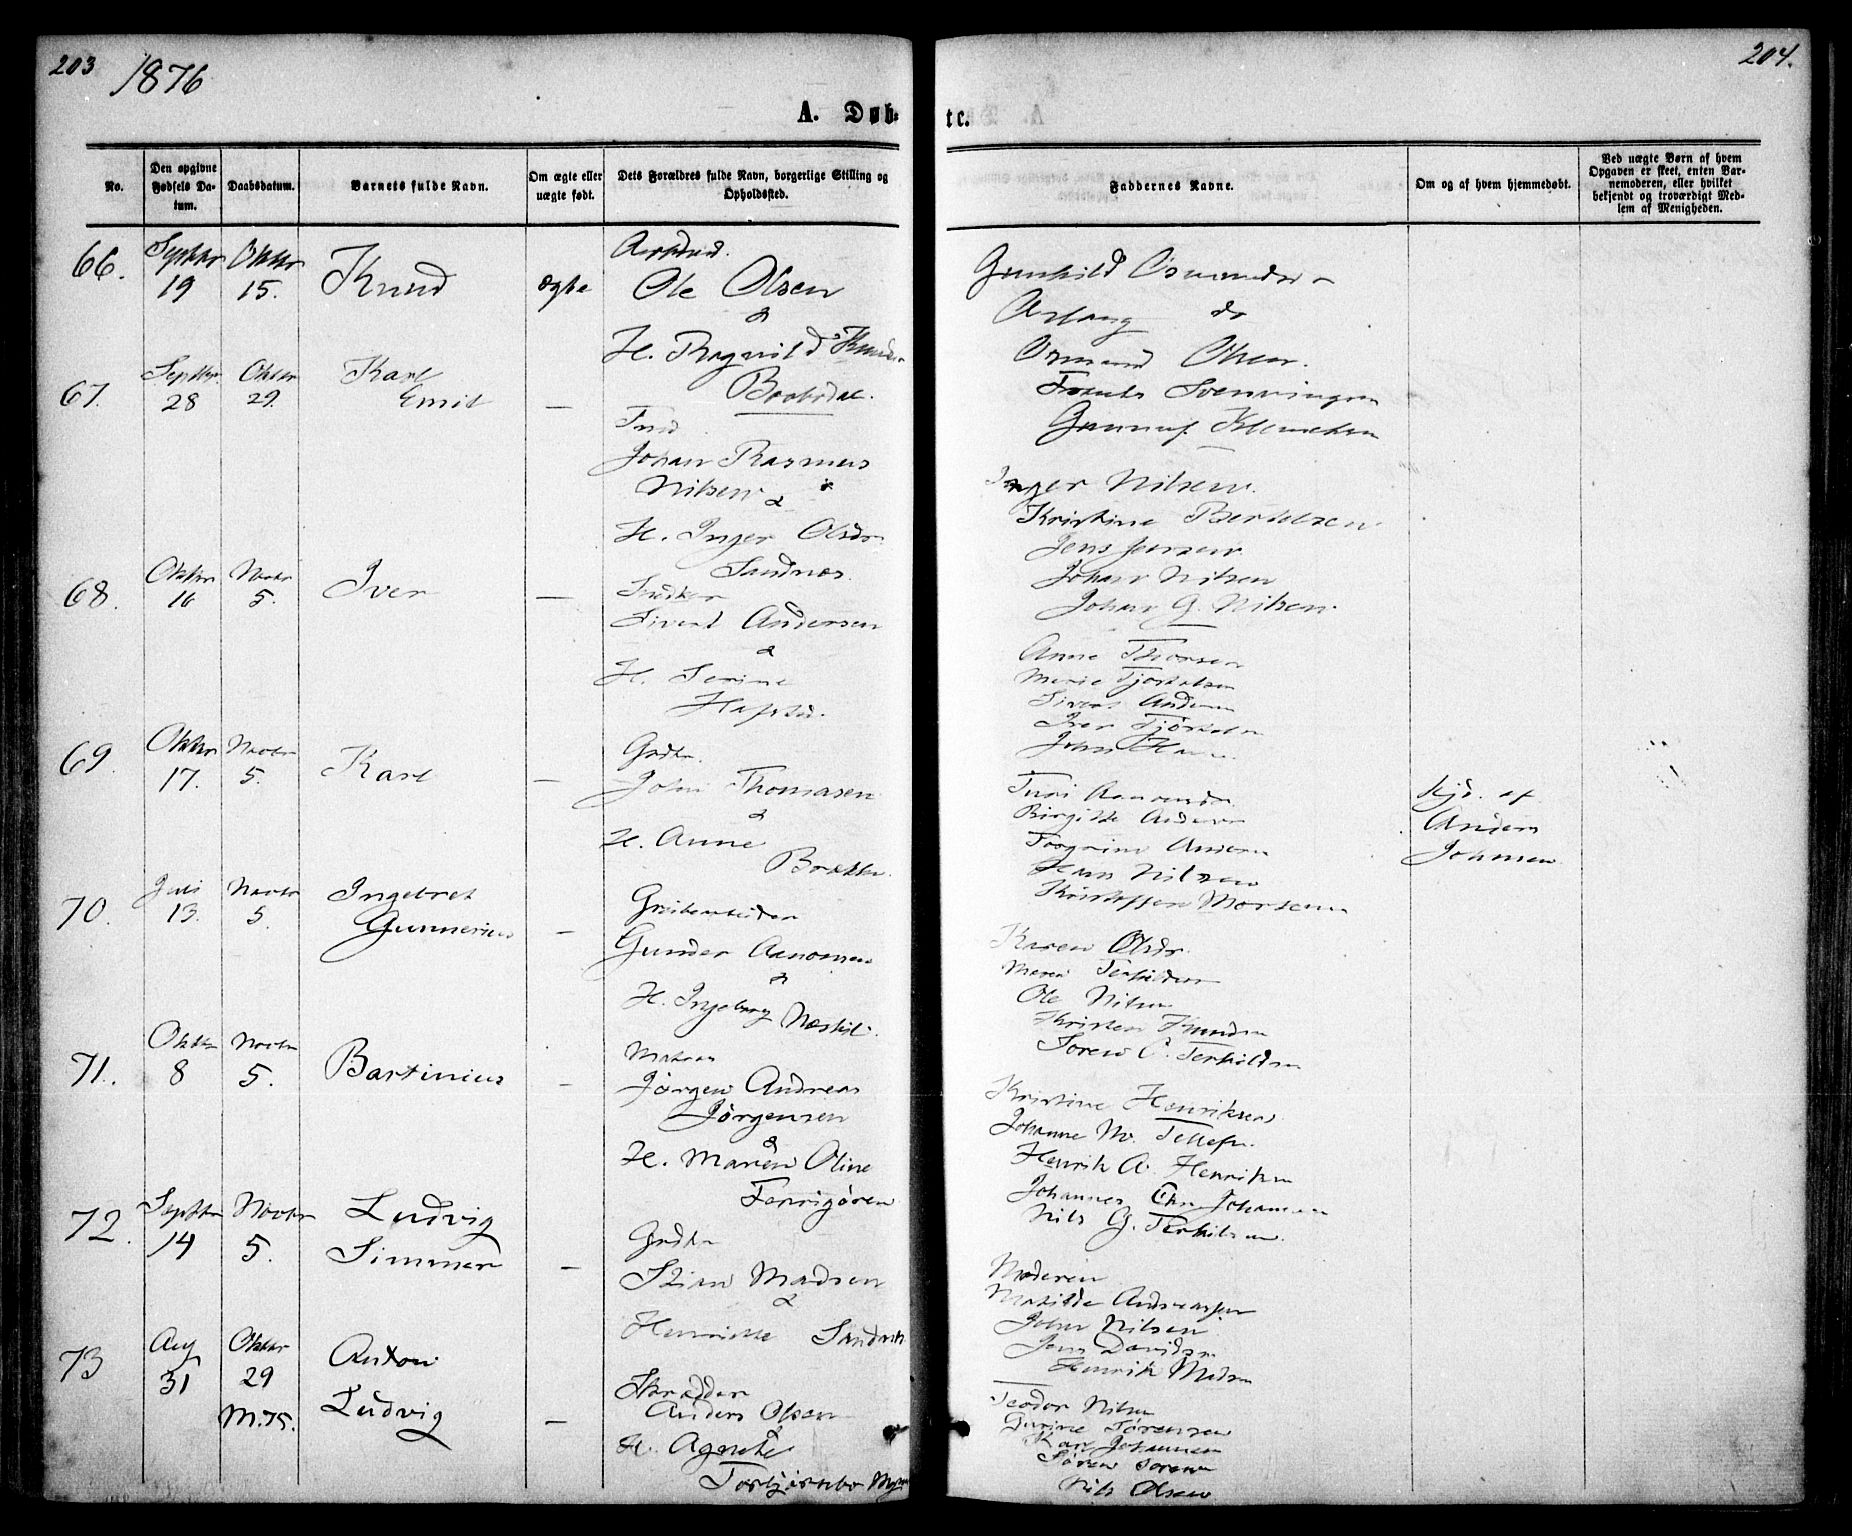 203
1876
A. Døb-
No.
Den opgivne Fødsels Datum.
Daabsdatum.
Barnets fulde Navn.
Om ægte eller uægte født.
Dets Forældres fulde Navn, borgerlige Stilling og Opholdssted.
66.
Septbr 19
Oktbr 15.
Knud
ægte
Ole Olsen
&
H. Ragnild Knuds
67.
Septbr 28
Oktbr 29.
Karl
Emil
—
Johan Rasmus
Nilsen &
H. Inger Olsdr
Sandnæs.
68.
Oktbr 16
Novbr 5.
Iver
—
Sivert Andersen
&
H. Serine
69.
Oktbr 17.
Novbr 5.
Karl
—
Grdbr.
John Thomasen
&
H. Anne
Brække
70.
Juli 13.
Novbr 5
Ingebret
Gunnerius
—
Grubearbeider
Gunder Aanonsen
&
H. Ingeborg Næskil
71.
Oktbr 8
Novbr 5.
Bartinius
—
Matros
Jørgen Andreas
Jørgensen
&
H. Maren Oline
72.
Septbr 14
Novbr 5.
Ludvig
Simmer
—
Grdbr
Stian Madsen
&
Henriette Sandvik
73
Aug 31
Oktbr 29
M. 75.
Anton
Ludvig
—
Skrædder
Anders Olsen
&
H. Agnete
204.
te.
Faddernes Navne.
Om og af hvem hjemmedøbt.
Ved uægte Børn af hvem Opgaven er skeet, enten Barnemoderen, eller hvilket bekjendt og troværdigt Medlem af Menigheden.
Gunhild Osmundsdr
Aslaug do
Osmund Olsen.
Svenningsen
Gunnuf
Inger Nilsen.
Kristine Bertelsen.
Jens Jensen
Johan Nilsen
Johan G. Nilsen.
Anne Thorsen
Marie Tjøstelsen
Sivert Andersen
Iver Tjøstelsen
John
Birgitte Anders
Torgrim Anders
Hans Nilsen
Kristoffer Mortensen
Hjd. af
Anders
Johnsen
Karen Olsdr.
Maren Terkildsen
Ole Nilsen
Kristen Knudsen
Søren C. Terkildsen
Kristine Henriksen
Johanne M. Tellefs.
Henrik A. Henriksen
Johannes Chr. Johannesen
Nils G. Terkilsen.
Moderen
Matilde Andreassen
John Nilsen
Jens Davidsen
Henrik Madsen
Teodor Nilsen
Gurine Sørensen
Karl Johannesen
Søren Sørensen
Nils Olsen